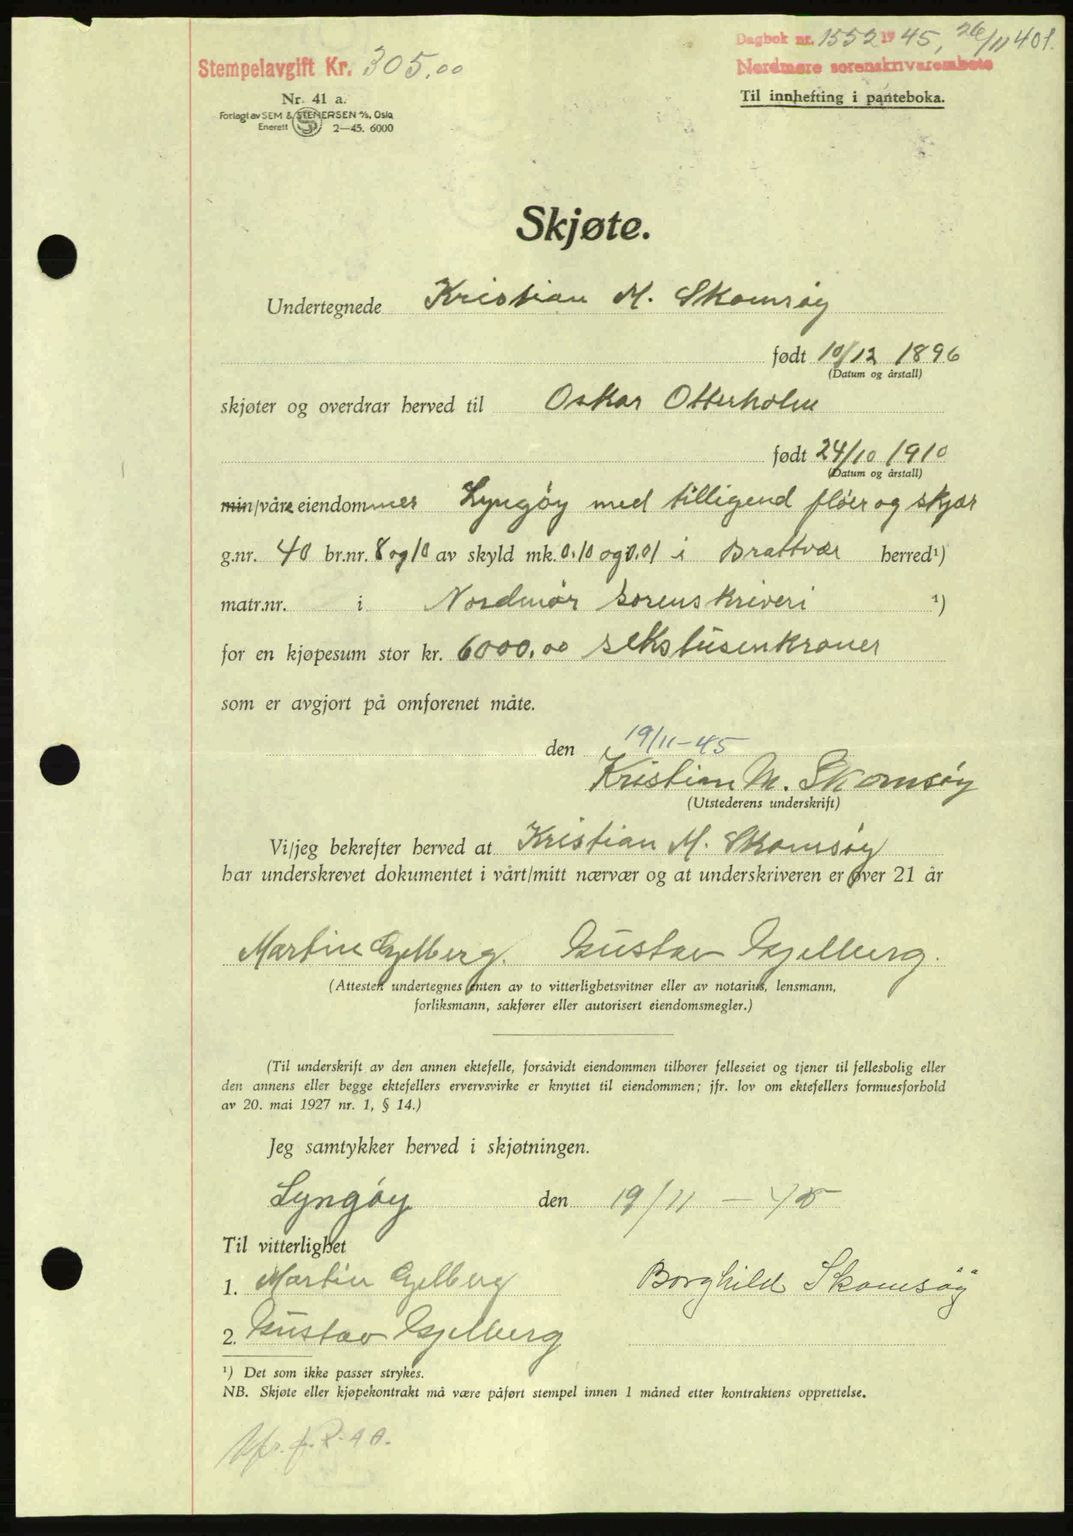 Dagbok nr. 1552 1945, 26/11 401.
Stempelavgift Kr. 305,00
Nordmøre sorenskriverembete
Nr. 41 a.
Til innhefting i panteboka.
Forlagt av SEM & STENERSEN A/S, Oslo
Enerett 2—45. 6000
Skjøte.
Undertegnede Kristian M. Skomsøy
født 10/12 1896
(Datum og årstall)
skjøter og overdrar herved til Oskar Otterholm
født 24/10 1910
(Datum og årstall)
min/våre eiendommer Lyngøy med tilligend fløer og skjær
g.nr. 40 br.nr. 8 og 10 av skyld mk. 0.10 og 0.01 i Brattvær herred¹)
matr.nr. i Nordmør sorenskriveri ¹)
for en kjøpesum stor kr. 6000,00 sekstusenkroner
som er avgjort på omforenet måte.
den 19/11-45
Kristian M. Skomsøy
(Utstederens underskrift)
Vi/jeg bekrefter herved at Kristian M. Skomsøy
har underskrevet dokumentet i vårt/mitt nærvær og at underskriveren er over 21 år
Martin Gjelberg. Gustav Gjelberg.
(Attesten undertegnes enten av to vitterlighetsvitner eller av notarius, lensmann,
forliksmann, sakfører eller autorisert eiendomsmegler.)
(Til underskrift av den annen ektefelle, forsåvidt eiendommen tilhører felleseiet og tjener til fellesbolig eller
den annens eller begge ektefellers ervervsvirke er knyttet til eiendommen; jfr. lov om ektefellers formuesforhold
av 20. mai 1927 nr. 1, § 14.)
Jeg samtykker herved i skjøtningen.
Lyngøy den 19/11-45
Til vitterlighet
1. Martin Gjelberg Borghild Skomsøy
2. Gustav Gjelberg
¹) Det som ikke passer strykes.
NB. Skjøte eller kjøpekontrakt må være påført stempel innen 1 måned etter kontraktens opprettelse.